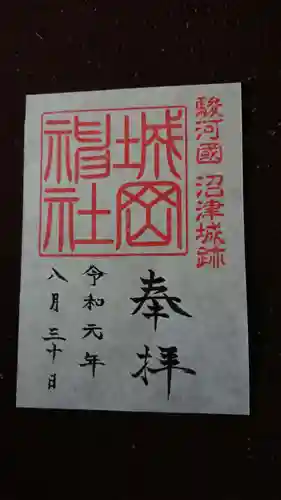 駿河國 沼津城跡
城岡神社
奉拝
令和元年
八月三十日